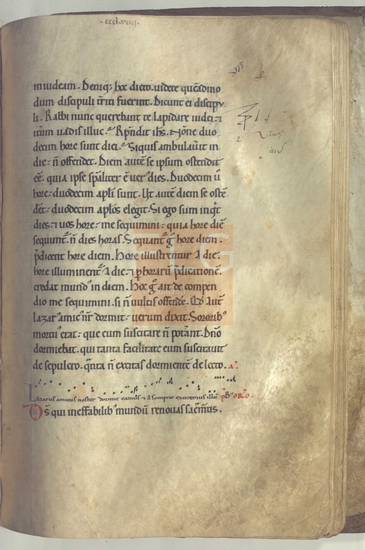 in iudeam. Deniq; hoc dicto. uidete quēadmo
dum discipuli c̄t̄ti fuerint. Dicunt ei discipu
li. Rabbi nunc querebant te lapidare iudei. ⁊
itum uadis illuc. Rn̄dit ih̄s. Nōne duo
decim hore sunt diei. Siquis ambulauit in
die. n̄ offendet. Diem autē se ipsum ostendit
eē. quia ipse sp̄aliter ē uer᷒ dies. Duodecim u᷒
hore. duodecim apl̄i sunt. Ut autē diem se oste
dēt. duodecim apl̄os elegit. Si ego sum inq̄t
dies. ⁊ uos hore. me sequimini. quia hore diē
sequunt᷒. n̄ dies horas. Sequant᷒ g̊ hore diem.
p̄dicent hore diem. Hore illustrent᷒ a die.
hore illuminent᷒ a die. ⁊ p horarū p̄dicationē.
credat mund᷒ in diem. Hoc g̊ ait de compen
dio me sequimini. si n̄ uultis offende. aut̄
lazar᷒ amic᷒ nr̄ dormit. uerum dixit. Sororib᷒
mortu᷒ erat. que eum suscitare n̄ potant. Dn̄o
dormiebat. qui tanta facilitate eum suscitauit
de sepulcro. quanta n̄ excitas dormientē de lecto. A᷒.
Lazarus amicus noster dormit eamus ⁊ a sompno excitemus illum
D̄s qui ineffabilib᷒ mundū renouas sacm̄tis.